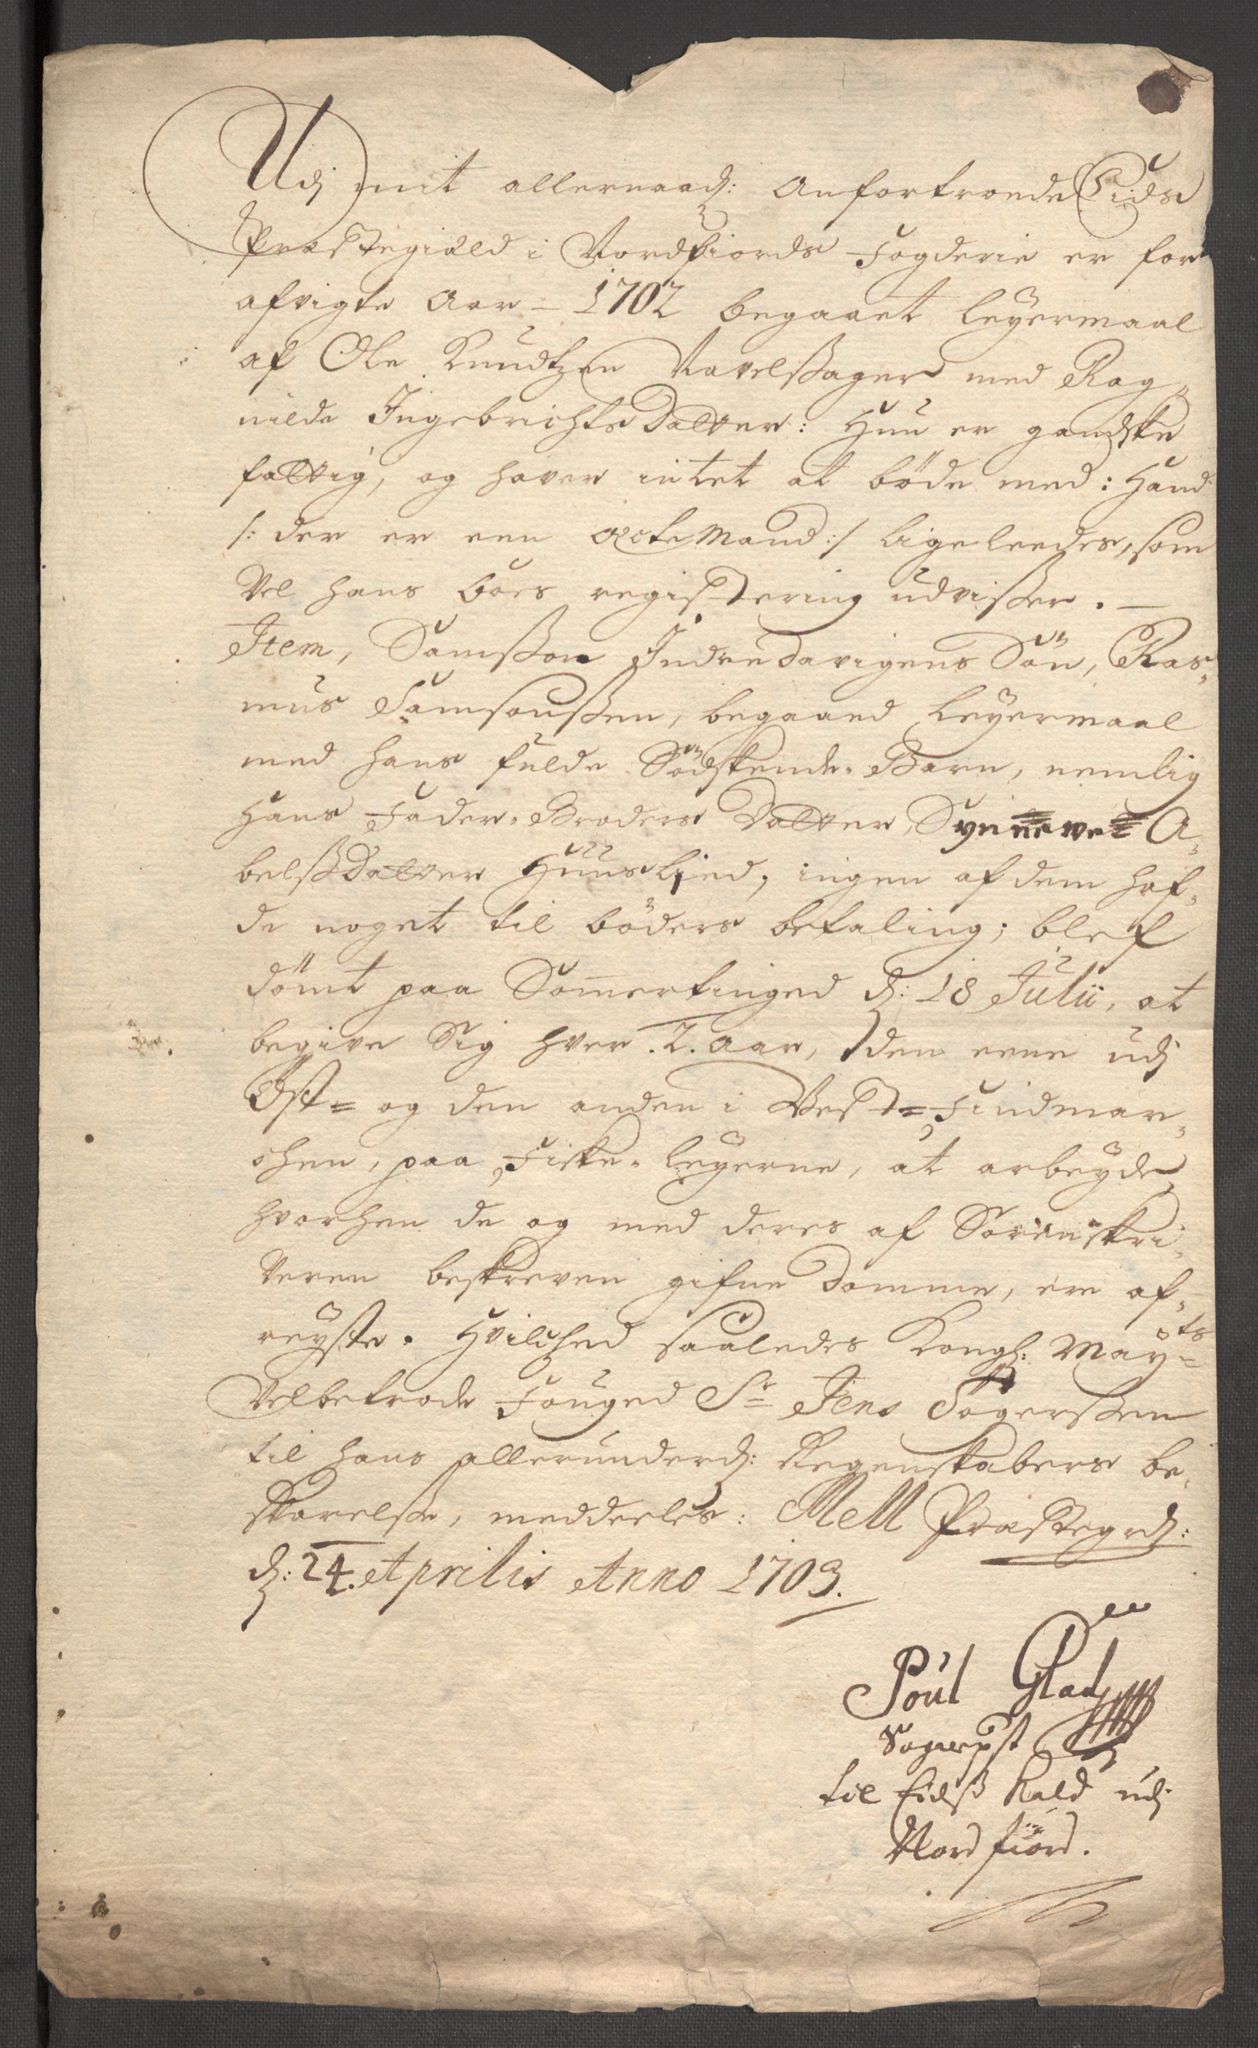 Udj mit allernaadj: Anfortroede Eids
Præstegiæld i Nordfiords Fogderie er for
afvigte Aar – 1702 begaaet Leyermaal
af Ole Knudtzen Navelßager med Rag-
nilde Ingebrichts Datter: Hun er gandske
fattig, og haver intet at böde med: Hand
/: der er een ægte Mand :/ ligeleedes, som
Vel hans boes registering udvißer. –
Item, Samßon Indredavigens Sön, Ras-
mus Samsonßen, begaaed Leyermaal
med hans fulde Södskende-Barn, nemlig
Hans Fader-Broders Datter, Synnevet A-
belßDatter Huus lied, ingen af dem haf-
de noget til böders betaling; blef
dömt paa Sommertinged d: 18 Julii, at
begive Sig hver .2. aar, den eene udj
Öst= og den anden i Vest=Findmar-
chen, paa Fiske-leyerne, at arbeyde
hvorhen de og med deres af Sorenskri-
veren beskreven gifne Domme, ere af-
reyste. Hvilched saaledes Kongl: Mayts
Velbetrode Fouged Sr Jens Sögerßen
til hans allerunderdj: Regenskabers be-
skarelße, meddeeles: Mell Præstegrd:
d: 24. Aprilis Anno 1703.
Poul Glad
Sognepst
til Eidsß Kald udj
Nordfiord.